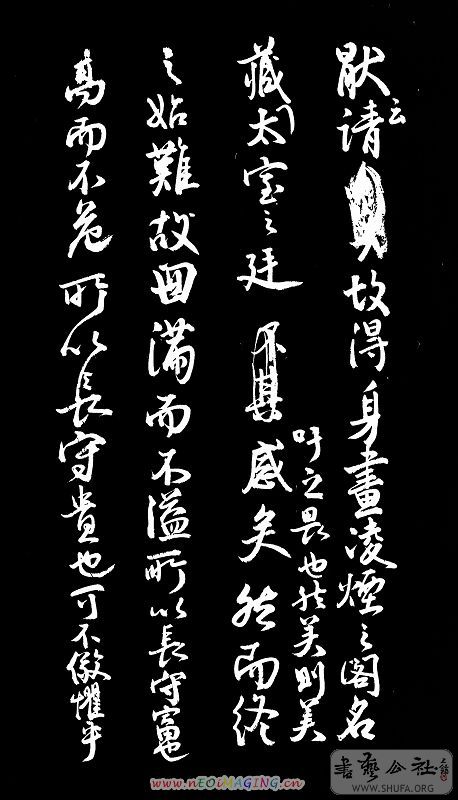 猒之請故得身畫凌煙之閣名
吁足畏也然美則美
藏太室之廷不其盛矣然而終
之始難故曰滿而不溢所以長守富也
高而不危所以長守貴也可不儆懼乎
書藝公社
WWW.SHUFA.ORG
www.nEOiMAGING.cn